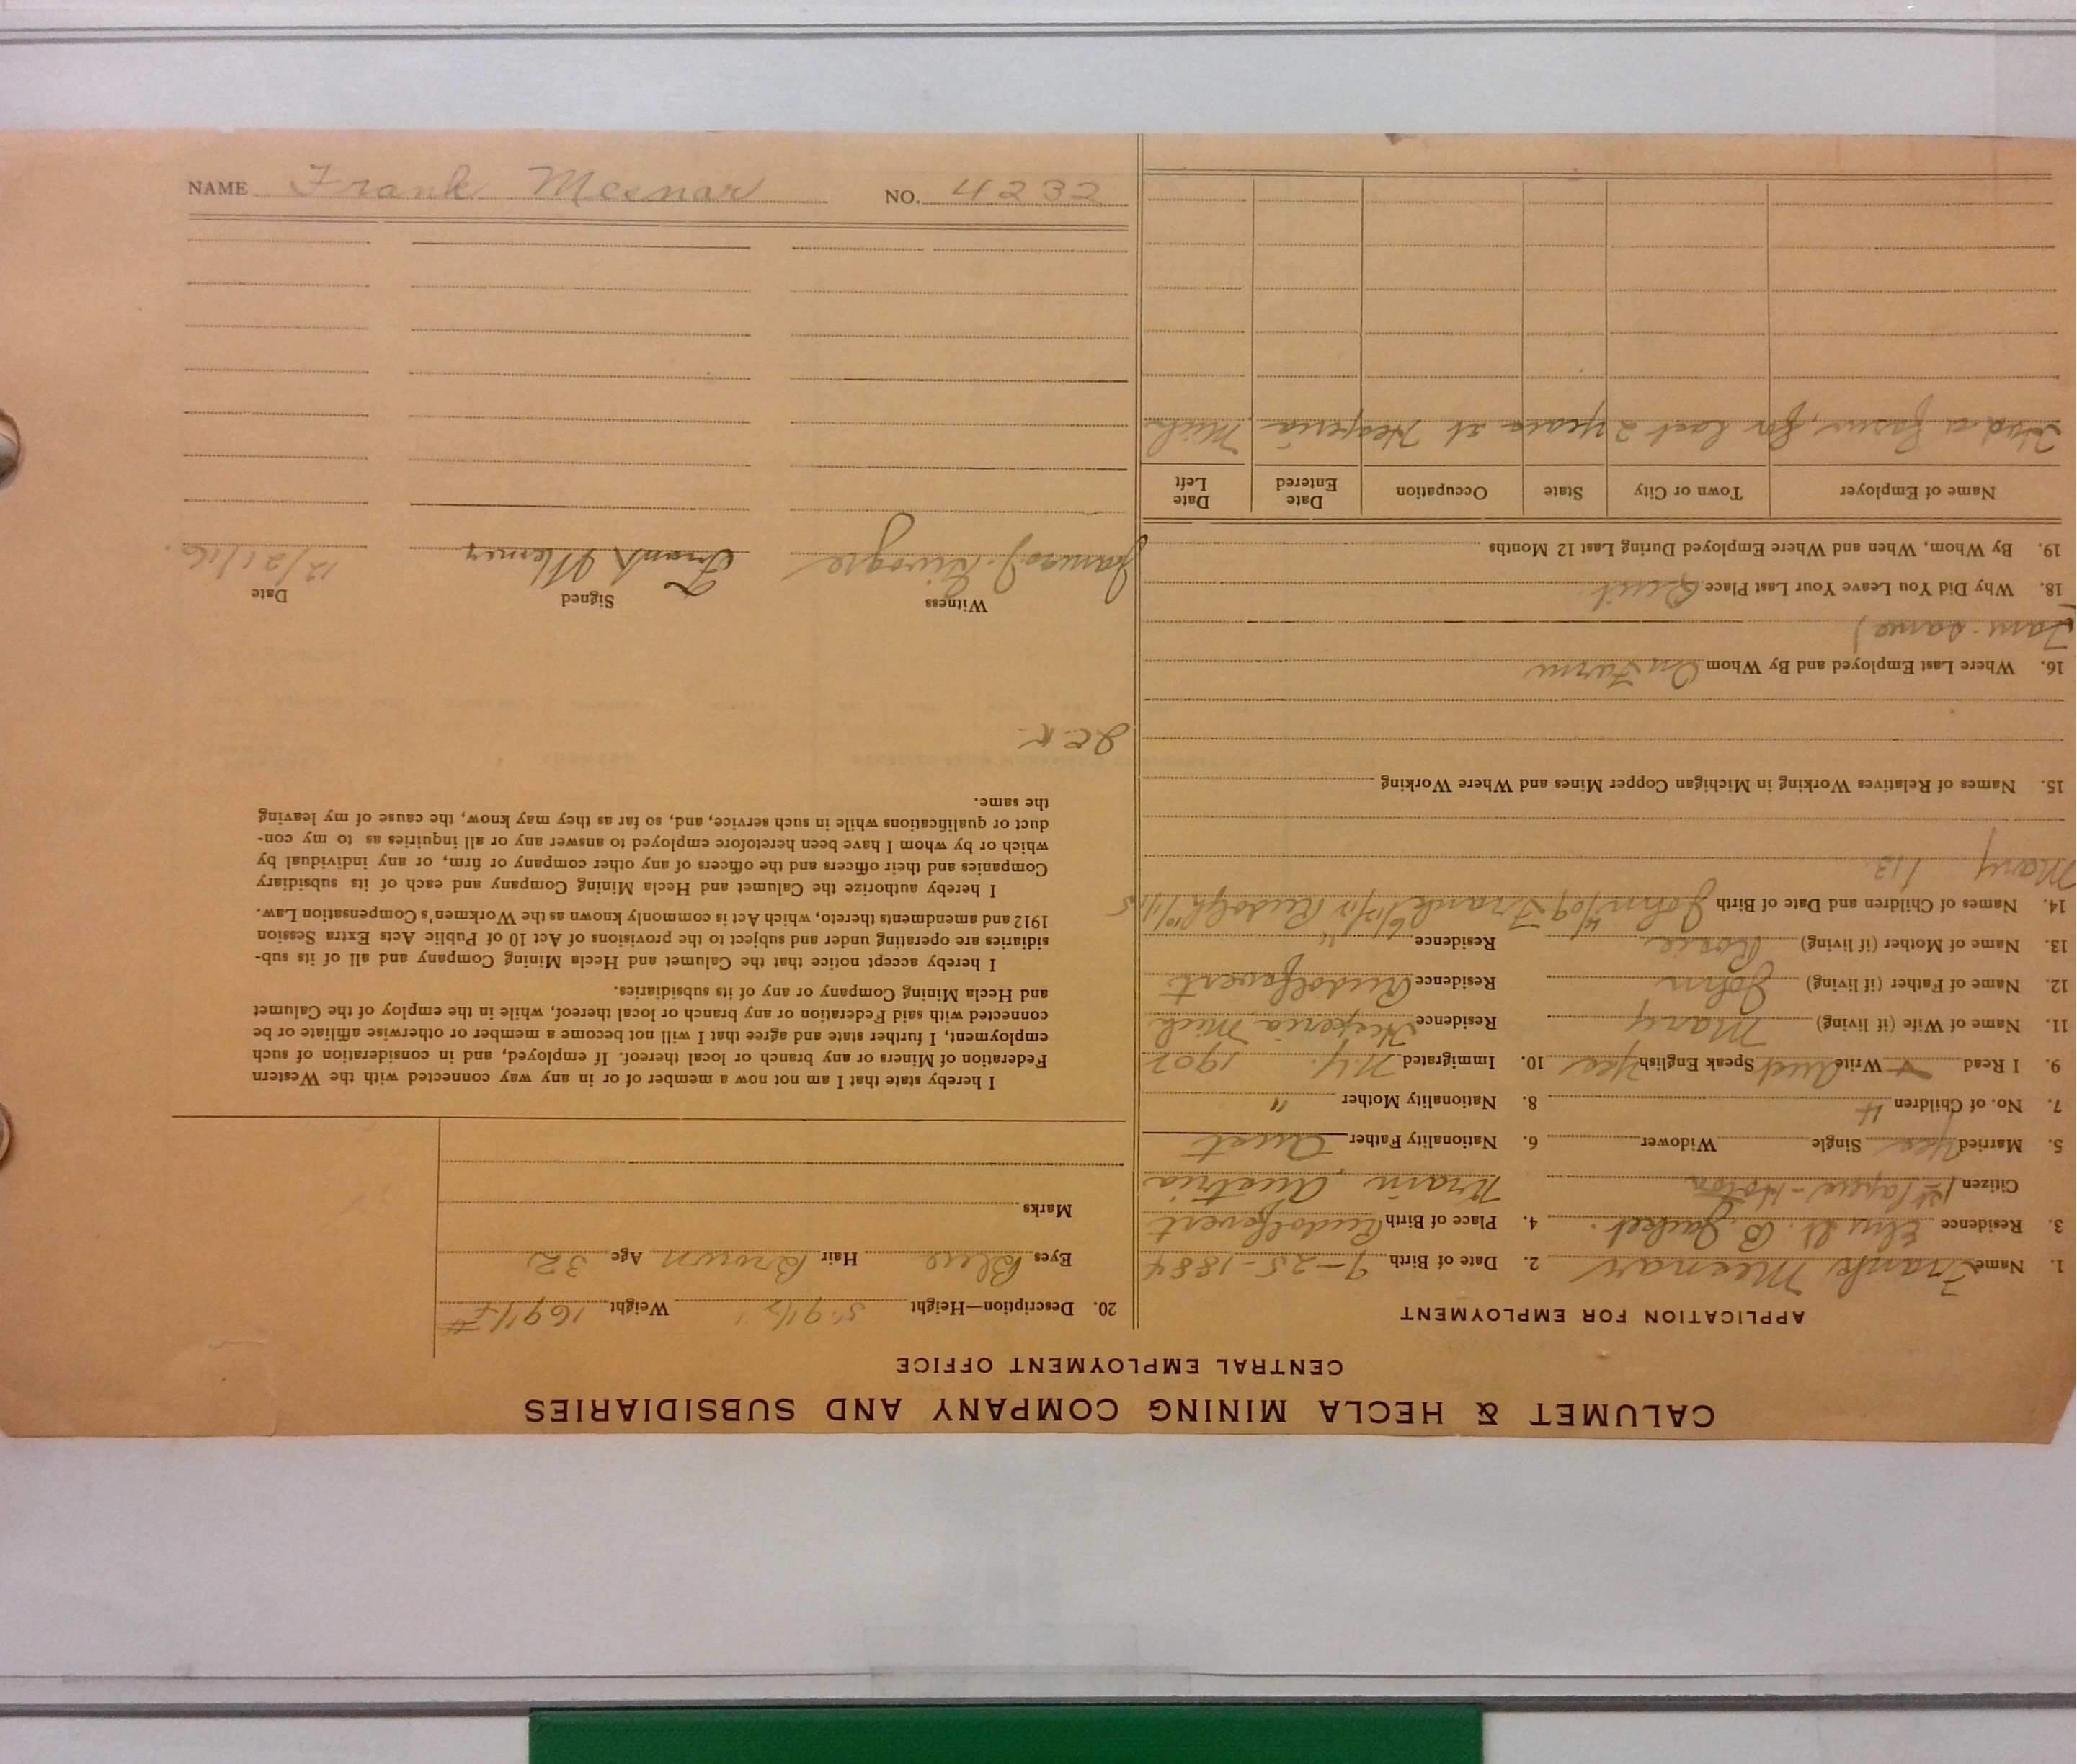 NAME Frank Mesnar NO. 4232
CALUMET & HECLA MINING COMPANY AND SUBSIDIARIES
CENTRAL EMPLOYMENT OFFICE
APPLICATION FOR EMPLOYMENT
1. Name Frank Mesnar 2. Date of Birth 9-25-1884
3. Residence Elm St. B. Jacket. 4. Place of Birth Rudolfovert
Citizen 1st papers - Krain, Austria
5. Married Yes Single Widower 6. Nationality Father Aust
7. No. of Children 4 8. Nationality Mother "
9. I Read Write Speak English Yes 10. Immigrated N.Y. 1902
11. Name of Wife (if living) Mary Residence Hesperia Mich
12. Name of Father (if living) John Residence Rudolfovert
13. Name of Mother (if living) Rosie Residence "
14. Names of Children and Date of Birth John Frank Rudolph
Mary 1/13.
15. Names of Relatives Working in Michigan Copper Mines and Where Working
16. Where Last Employed and By Whom On Farm
same)
18. Why Did You Leave Your Last Place Quit.
19. By Whom, When and Where Employed During Last 12 Months
Name of Employer Town or City State Occupation Date Entered Date Left
Had a farm, for last 2 years at Hesperia Mich
20. Description—Height 5'-9 1/2" Weight 169 1/2 #
Eyes Blue Hair Brown Age 32
Marks
I hereby state that I am not now a member of or in any way connected with the Western
Federation of Miners or any branch or local thereof. If employed, and in consideration of such
employment, I further state and agree that I will not become a member or otherwise affiliate or be
connected with said Federation or any branch or local thereof, while in the employ of the Calumet
and Hecla Mining Company or any of its subsidiaries.
I hereby accept notice that the Calumet and Hecla Mining Company and all of its sub-
sidiaries are operating under and subject to the provisions of Act 10 of Public Acts Extra Session
1912 and amendments thereto, which Act is commonly known as the Workmen's Compensation Law.
I hereby authorize the Calumet and Hecla Mining Company and each of its subsidiary
Companies and their officers and the officers of any other company or firm, or any individual by
which or by whom I have been heretofore employed to answer any or all inquiries as to my con-
duct or qualifications while in such service, and, so far as they may know, the cause of my leaving
the same.
Witness Signed Date
James J. Frank Mesnar 12/21/16.